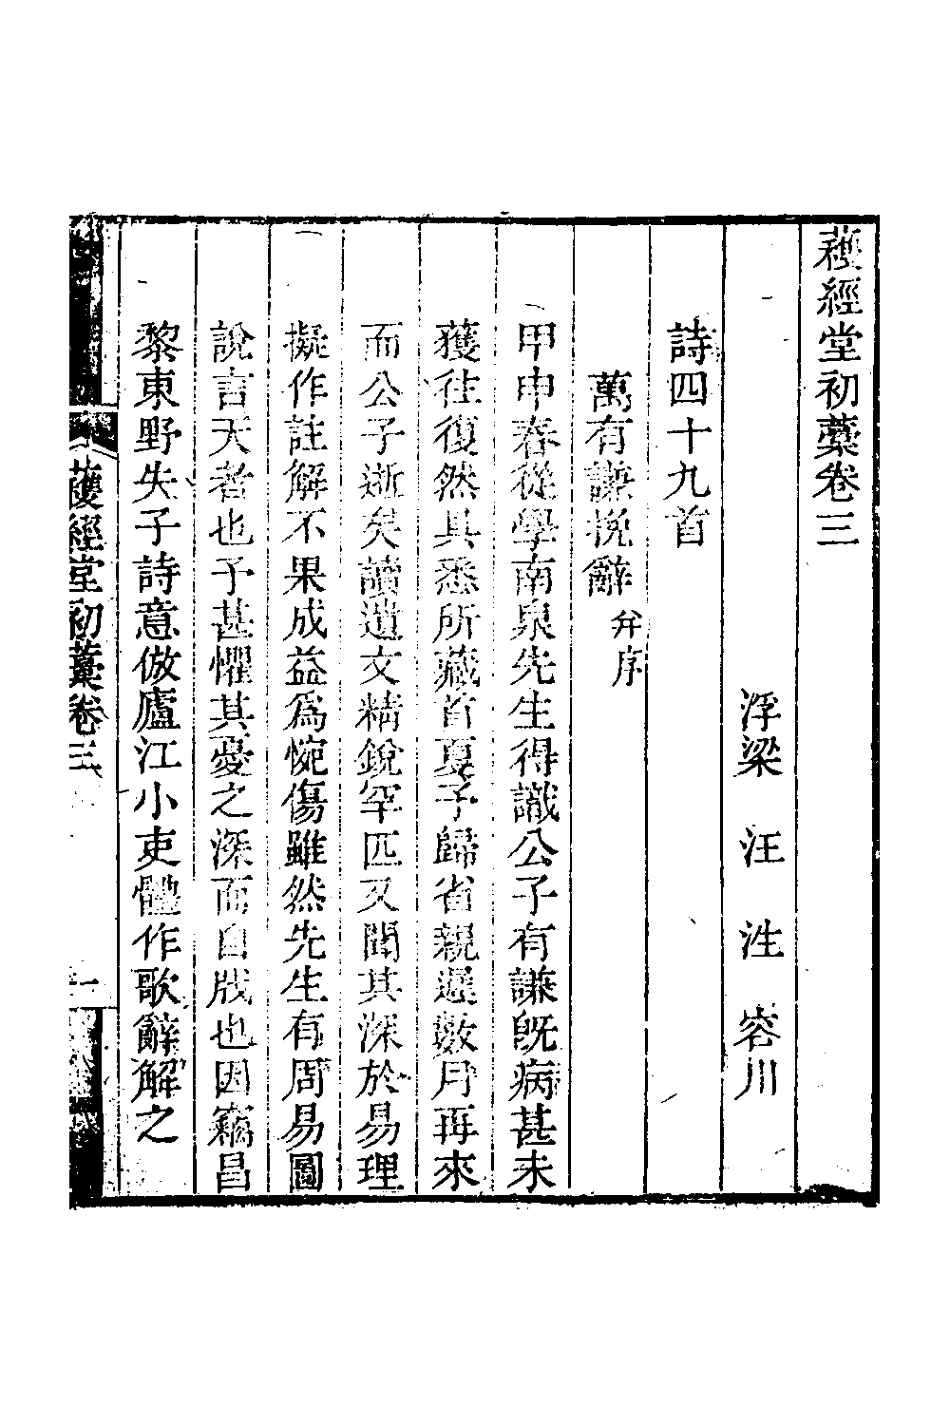 薐經堂初藁卷三
浮梁 汪 泩 容川
詩四十九首
萬有謙挽辭 并序
甲申春從學南泉先生得識公子有謙旣病甚未
獲往復然具悉所藏首夏予歸省親遲數月再來
而公子逝矣讀遺文精銳罕匹又聞其深於易理
擬作註解不果成益爲惋傷雖然先生有周易圖
說言天者也予甚懼其憂之深而自戕也因竊昌
黎東野失子詩意倣廬江小吏體作歌辭解之
薐經堂初藁卷三 一